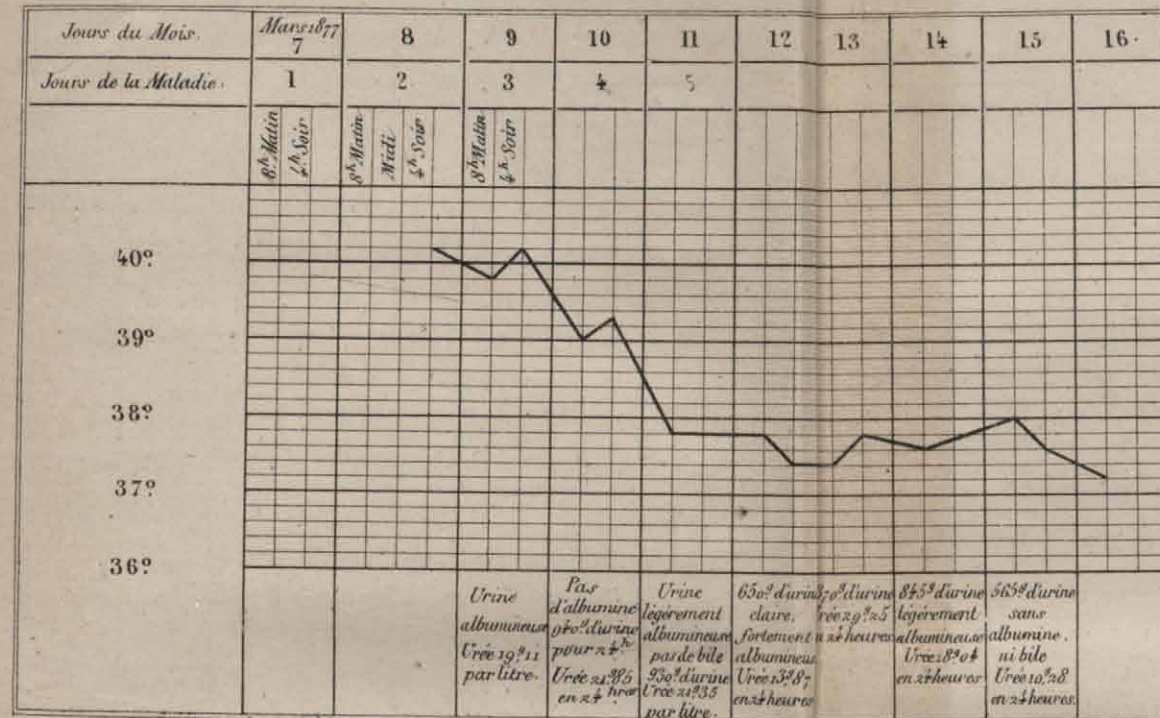 Jours du Mois. Mars 1877 7 8 9 10 11 12 13 14 15 16.
Jours de la Maladie. 1 2 3 4 5
8h Matin 4h Soir 8h Matin Midi 4h Soir 8h Matin 4h Soir
40º
39º
38º
37º
36º
Urine
albumineuse
Urée 19g11
par litre.
Pas
d'albumine
940g d'urine
pour 24h
Urée 21g85
en 24 hres
Urine
légérement
albumineuse
pas de bile
930g d'urine
Urée 21g35
par litre.
650g d'urine
claire,
fortement
albumineus
Urée 13g87
en 24 heures
370g d'urine
rée 29g25
n 24 heures
845g d'urine
légérement
albumineuse
Urée 18g04
en 24 heures
565g d'urine
sans
albumine,
ni bile
Urée 10g28
en 24 heures.